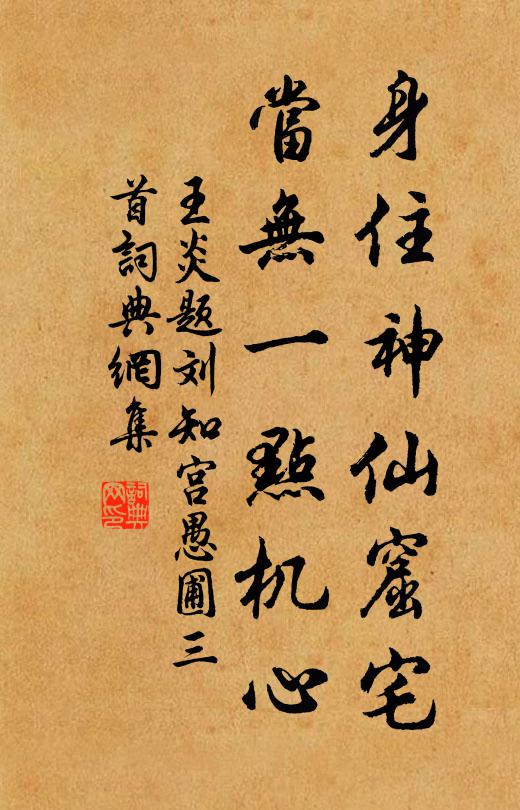 身住神仙窟宅
當無一點机心
王炎题刘知宫愚圃三
首詞典網集
詞典网印